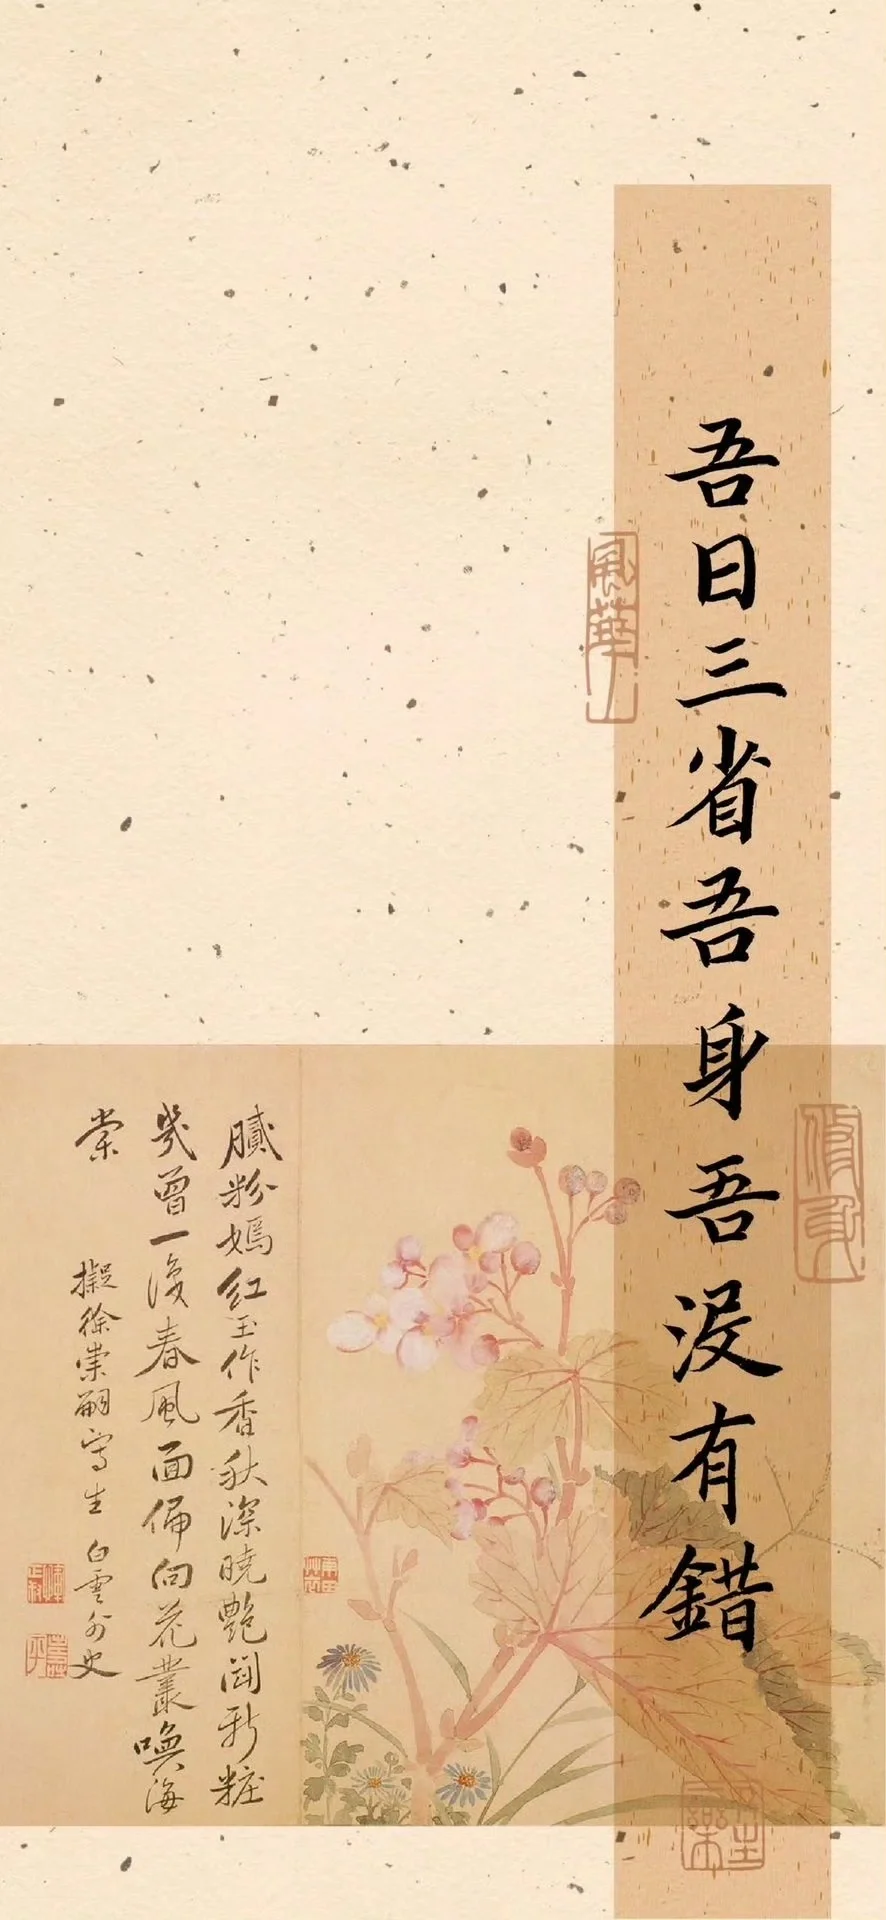 吾日三省吾身吾没有錯
風華
修身
膩粉嫣紅玉作香秋深曉艷鬥新粧
幾曾一春風面偏向花叢喚海
棠
擬徐崇嗣寫生 白雲外史